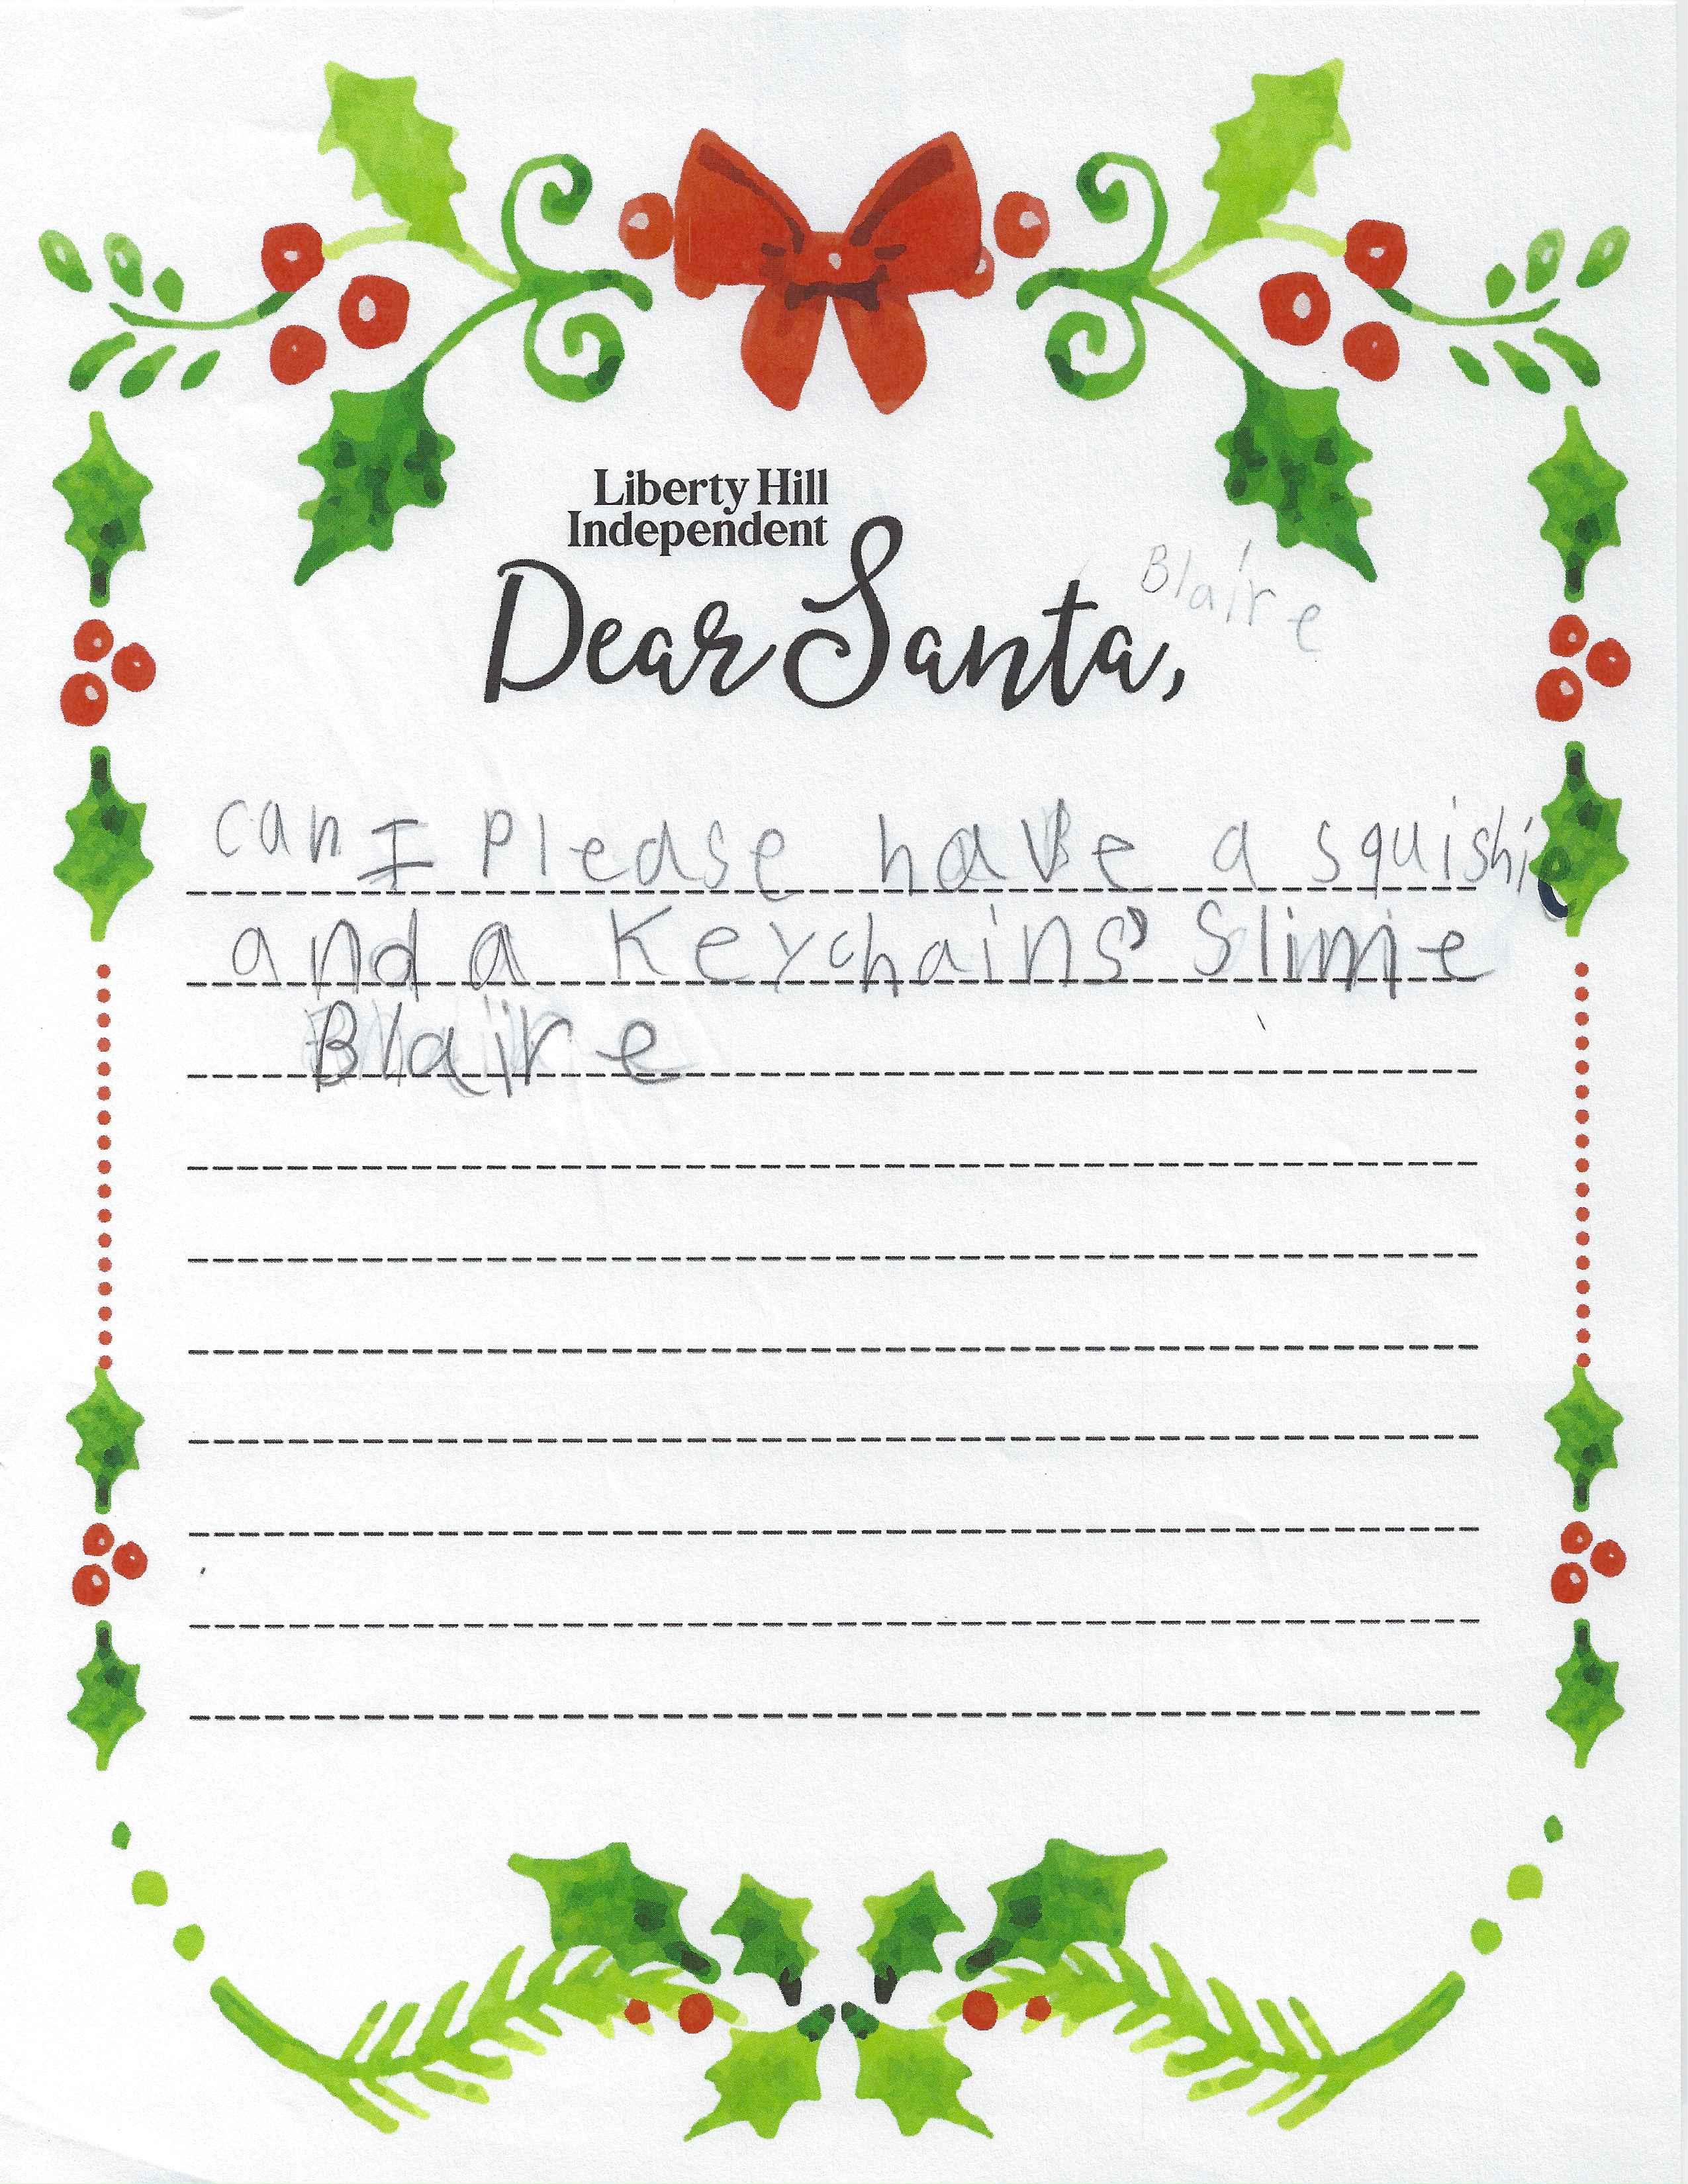 Liberty Hill
Independent
Dear Santa,
Blaire
can I Please have a squishie
and a Keychains, Slime
Blaire